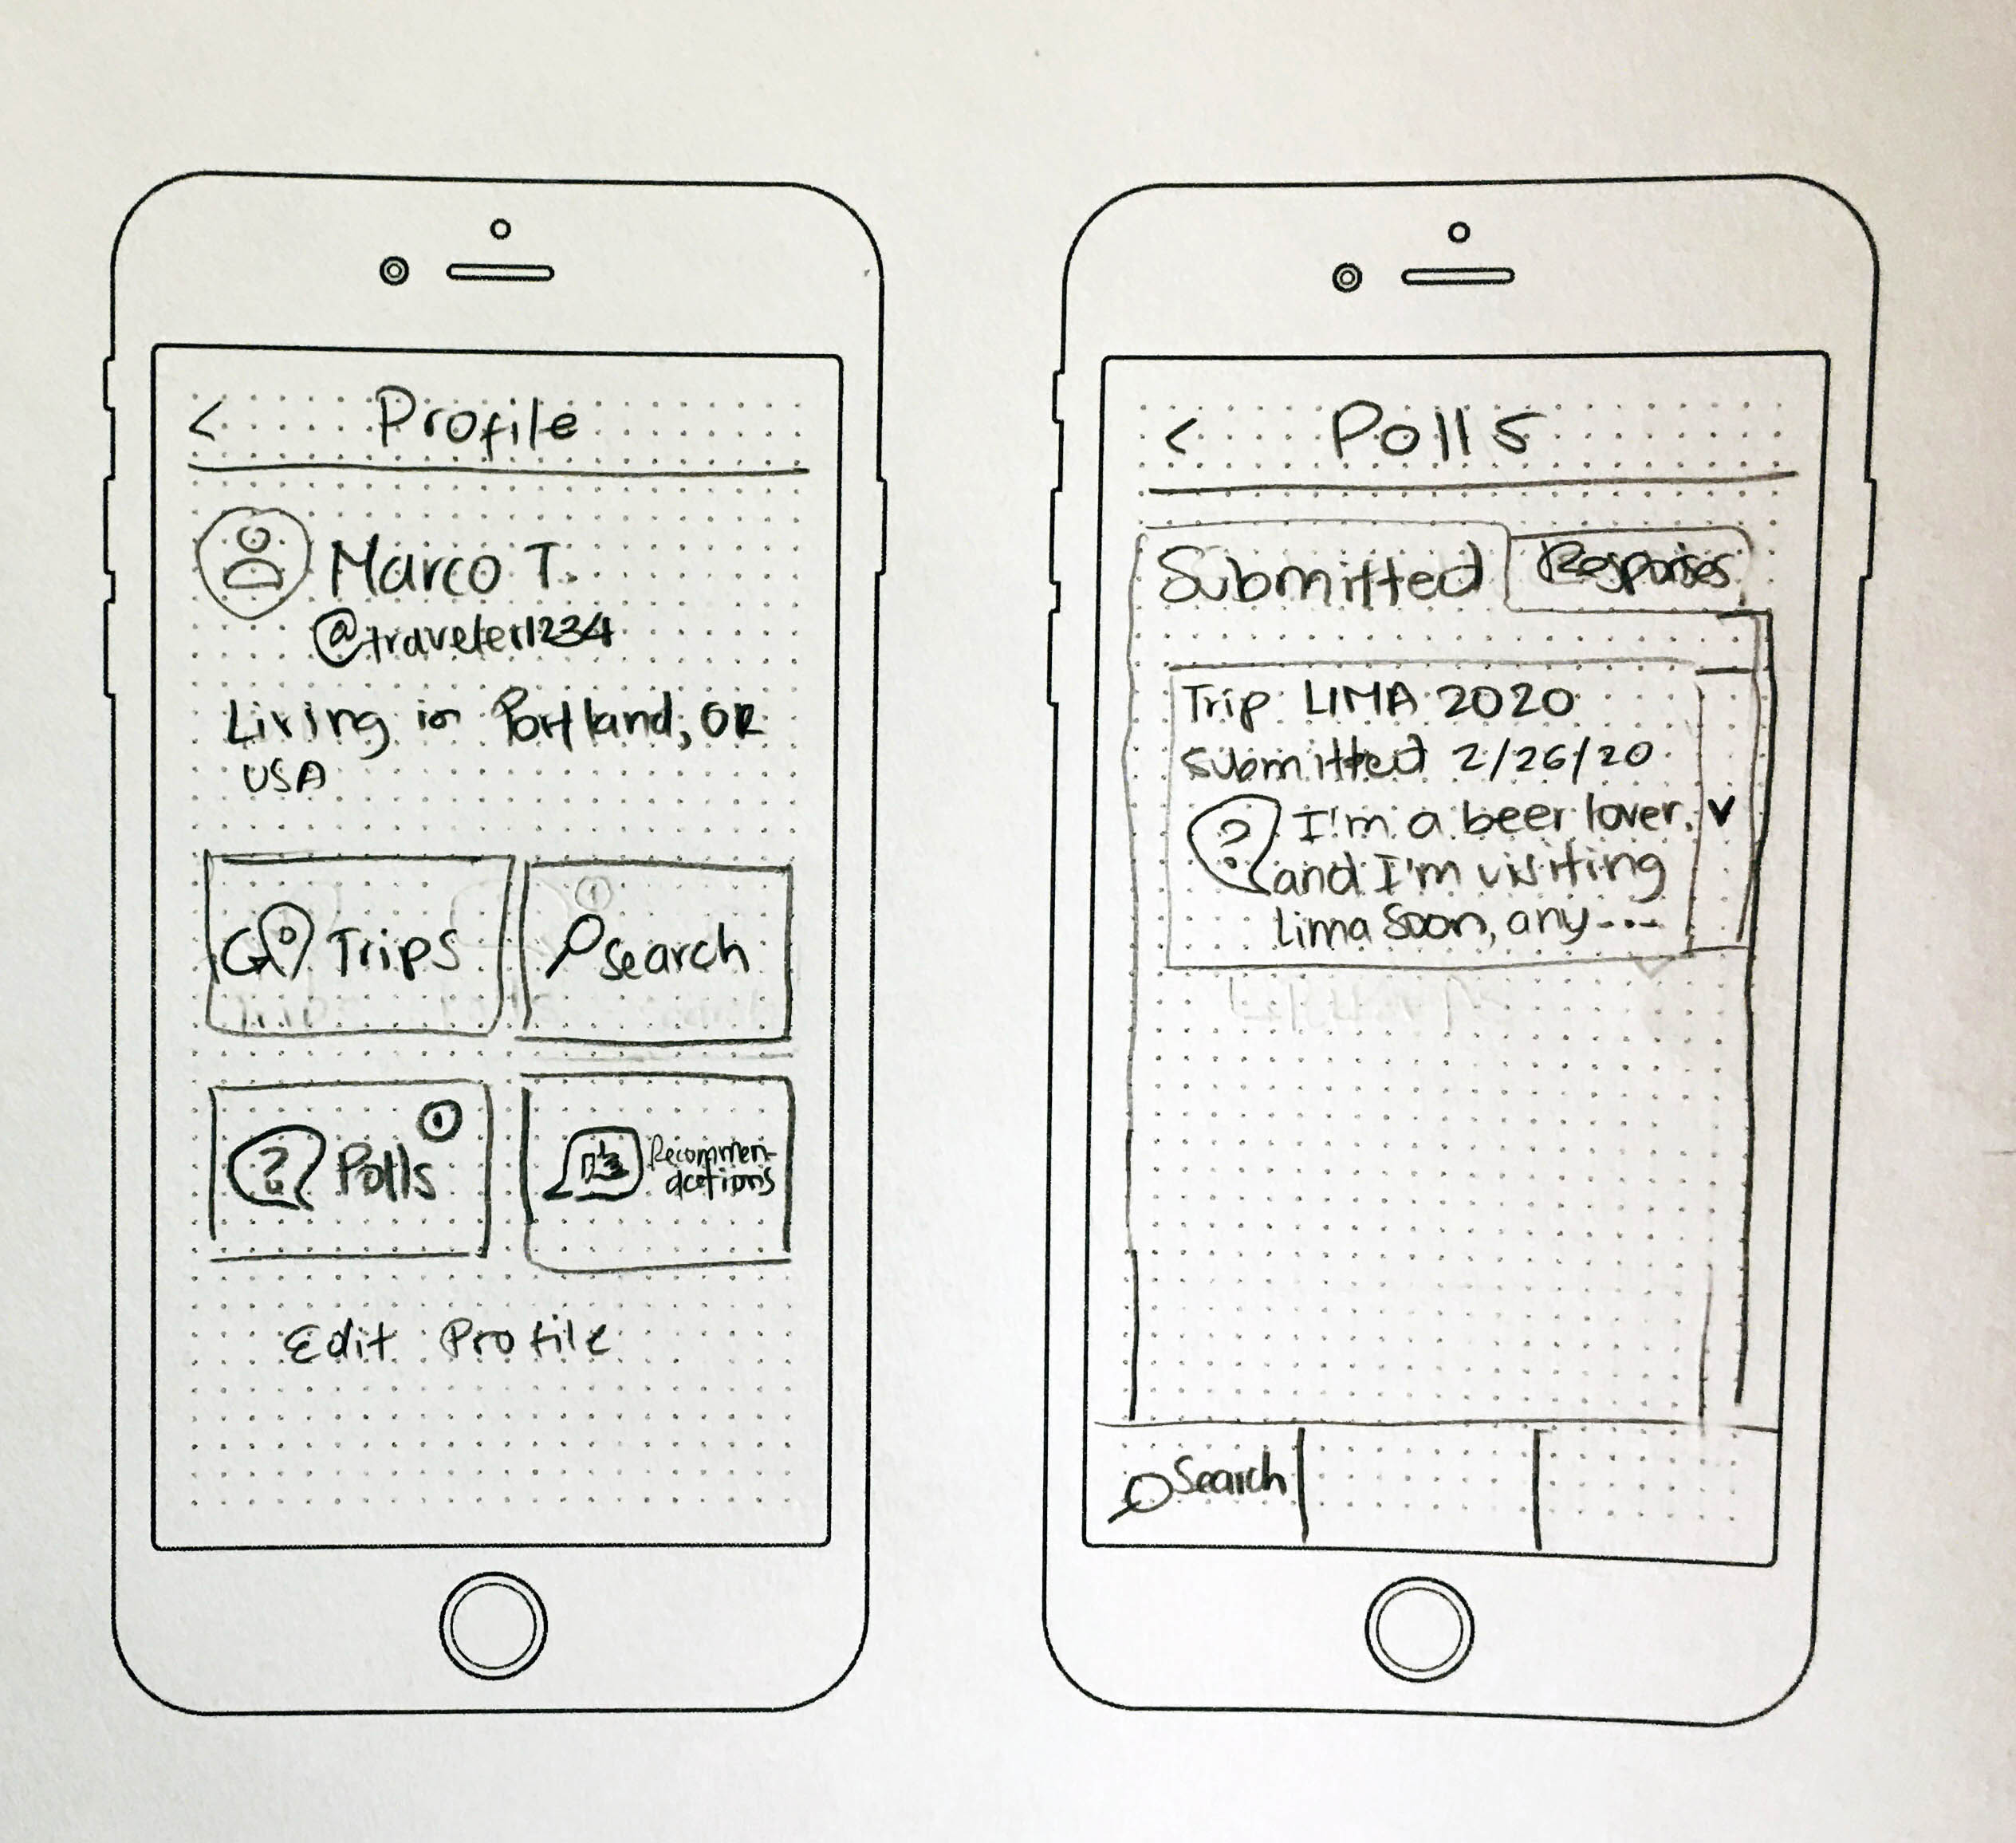 < Profile
Marco T.
@traveler1234
Living in Portland, OR
USA
Trips
Search
Polls
1
Recommen-
dations
Edit Profile
< Polls
Submitted
Responses
Trip: LIMA 2020
Submitted 2/26/20
? I'm a beer lover,
and I'm visiting
Lima Soon, any ---
Search